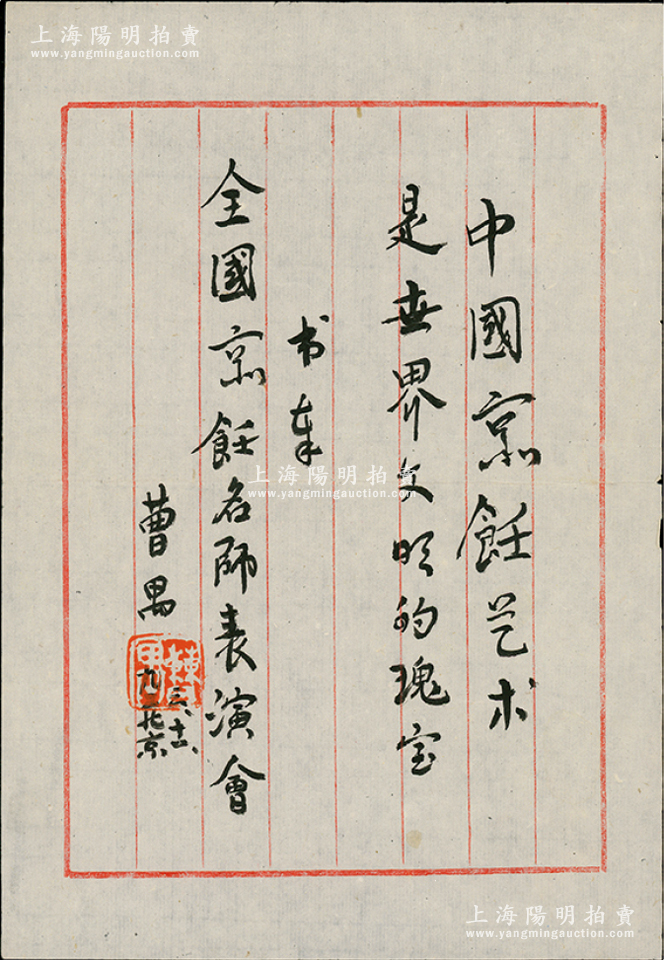 上海陽明拍賣
www.yangmingauction.com
中國烹飪艺术
是世界文明的瑰宝
书奉
全國烹飪名師表演會
曹禺
北京
上海陽明拍賣
www.yangmingauction.com
上海陽明拍賣
www.yangmingauction.com